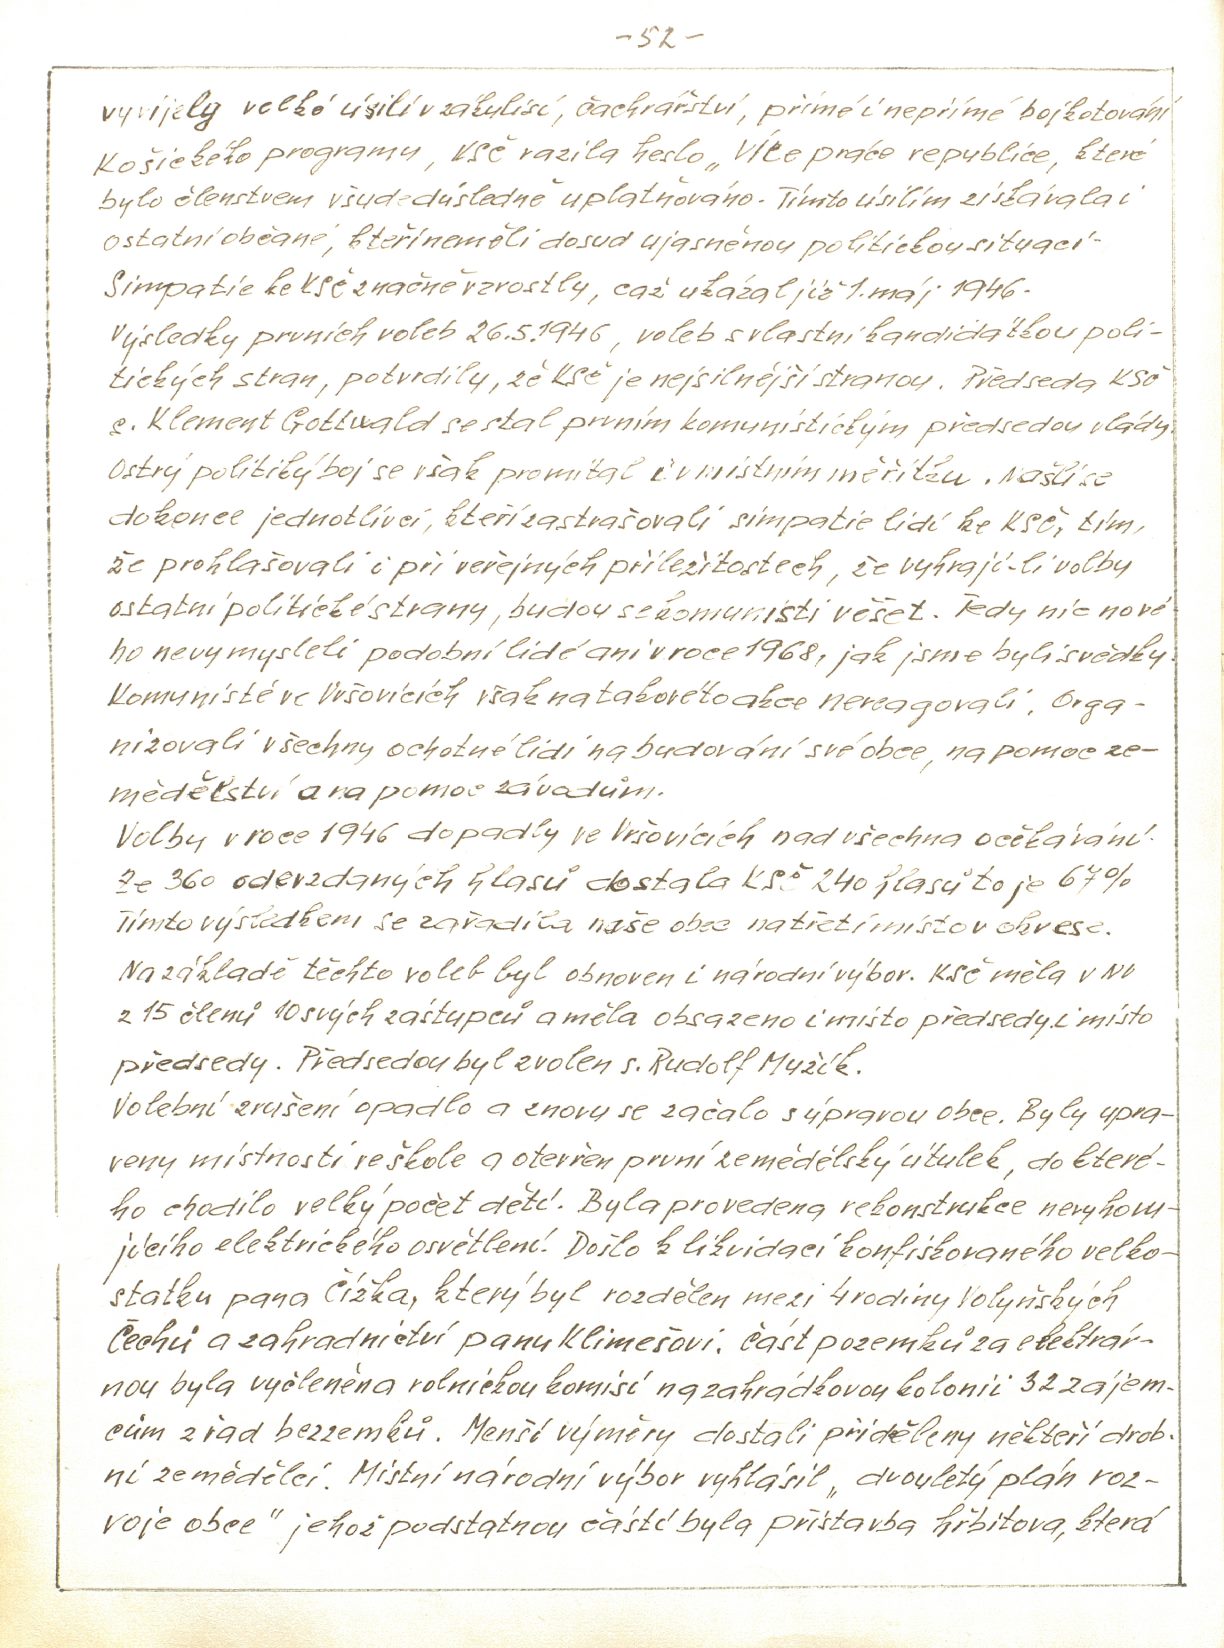 -52-
vyvíjely velké úsilí v zákulisí, čachrářství, přímé i nepřímé bojkotování
Košického programu, KSČ razila heslo „Více práce republice, které
bylo členstvem všude důsledně uplatňováno. Tímto úsilím získávala i
ostatní občané, kteří neměli dosud ujasněnou politickou situaci.
Simpatie ke KSČ značně vzrostly, což ukázal již 1. máj 1946.
Výsledky prvních voleb 26.5.1946, voleb s vlastní kandidátkou poli-
tických stran, potvrdily, že KSČ je nejsilnější stranou. Předseda KSČ
s. Klement Gottwald se stal prvním komunistickým předsedou vlády.
Ostrý politiký boj se však promítal i v místním měřítku. Našli se
dokonce jednotlivci, kteří zastrašovali simpatie lidí ke KSČ, tím,
že prohlašovali i při veřejných příležitostech, že vyhrají-li volby
ostatní politické strany, budou se komunisti věšet. Tedy nic nové-
ho nevymysleli podobní lidé ani v roce 1968, jak jsme byli svědky.
Komunisté ve Vršovicích však na takovéto akce nereagovali. Orga-
nizovali všechny ochotné lidi na budování své obce, na pomoc ze-
mědělství a na pomoc závodům.
Volby v roce 1946 dopadly ve Vršovicích nad všechna očekávání.
Ze 360 odevzdaných hlasů dostala KSČ 240 hlasů to je 67%
Tímto výsledkem se zařadila naše obec na třetí místo v okrese.
Na základě těchto voleb byl obnoven i národní výbor. KSČ měla v NV
z 15 členů 10 svých zástupců a měla obsazeno i místo předsedy i místo
předsedy. Předsedou byl zvolen s. Rudolf Mužík.
Volební zrušení opadlo a znovu se začalo s úpravou obce. Byly upra-
veny místnosti ve škole a otevřen první zemědělský útulek, do které-
ho chodilo velký počet dětí. Byla provedena rekonstrukce nevyhovu-
jícího elektrického osvětlení. Došlo k likvidaci konfiskovaného velko-
statku pana Čížka, který byl rozdělen mezi 4 rodiny Volyňských
Čechů a zahradnictví panu Klimešovi. Část pozemků za elektrár-
nou byla vyčleněna rolnickou komisí na zahrádkovou kolonii 32 zájem-
cům z řad bezzemků. Menší výměry dostali přiděleny někteří drob-
ní zemědělci. Místní národní výbor vyhlásil „dvouletý plán roz-
voje obce" jehož podstatnou částí byla přístavba hřbitova, která